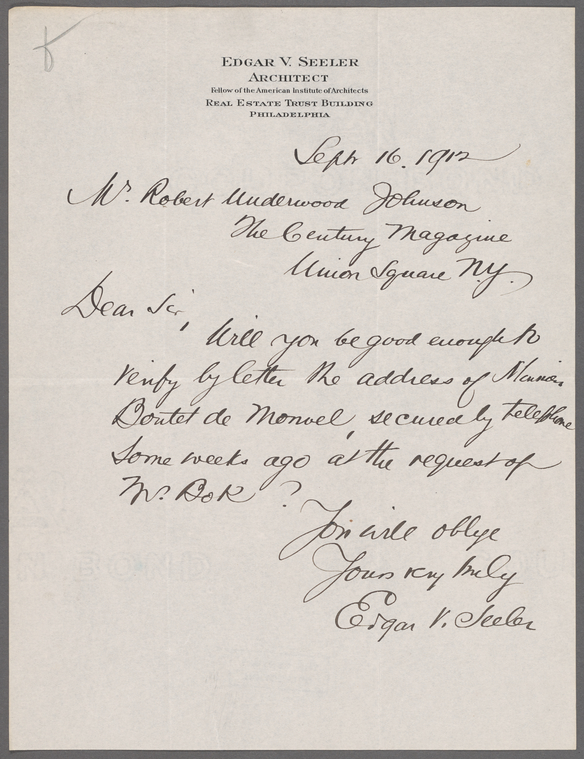 EDGAR V. SEELER
ARCHITECT
Fellow of the American Institute of Architects
REAL ESTATE TRUST BUILDING
PHILADELPHIA
Sept 16. 1912
Mr. Robert Underwood Johnson
The Century Magazine
Union Square N.Y.
Dear Sir,
Will you be good enough to
verify by letter the address of
Boutet de Monvel, secured by telephone
some weeks ago at the request of
Mr. Bok?
You will oblige
Yours very truly
Edgar V. Seeler